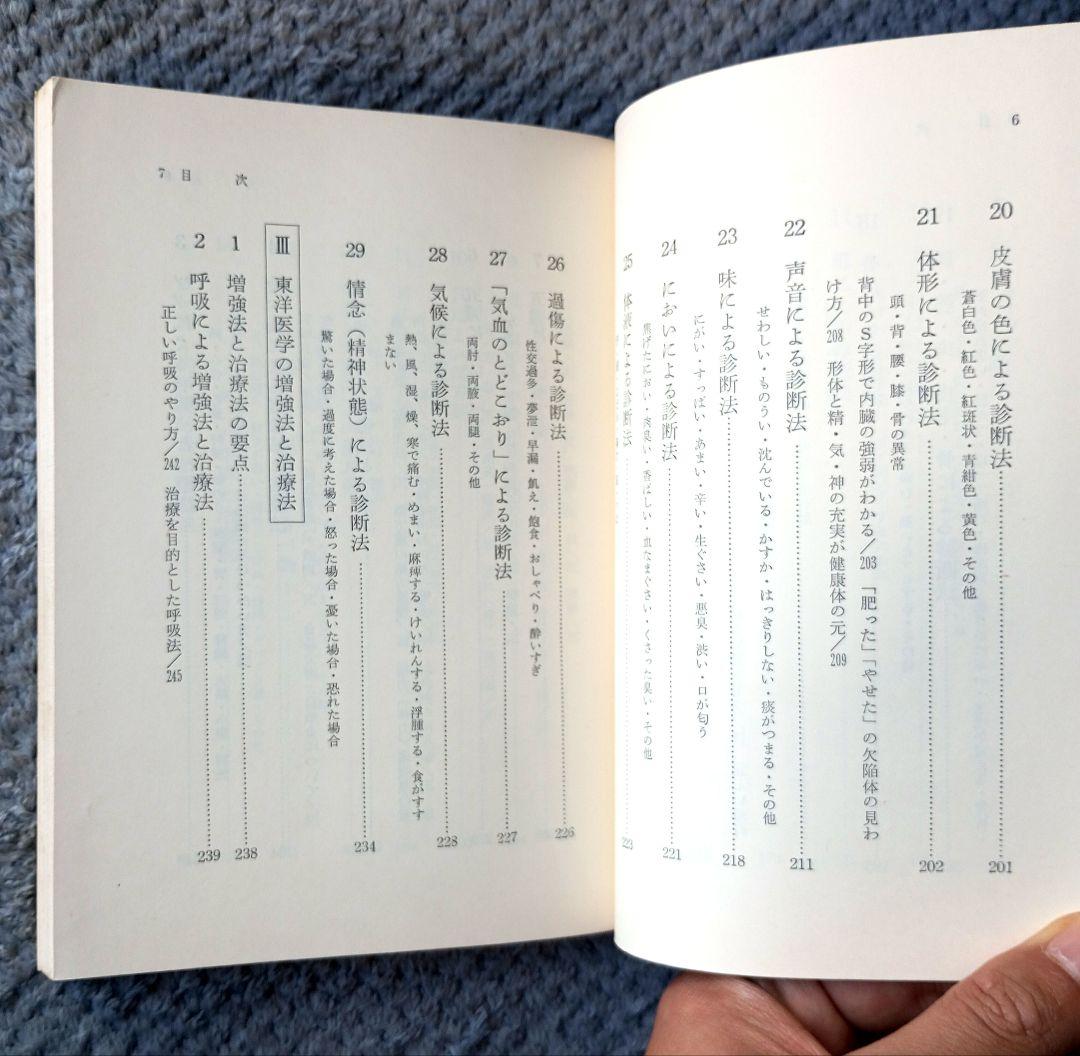 6
20 皮膚の色による診断法……201
蒼白色・紅色・紅斑状・青紺色・黄色・その他
21 体形による診断法……202
頭・背・腰・膝・骨の異常
背中のS字形で内臓の強弱がわかる/203 「肥った」「やせた」の欠陥体の見わ
け方/208 形体と精・気・神の充実が健康体の元/209
22 声音による診断法……211
せわしい・ものうい・沈んでいる・かすか・はっきりしない・痰がつまる・その他
23 味による診断法……218
にがい・すっぱい・あまい・辛い・生ぐさい・悪臭・渋い・口が匂う
24 においによる診断法……221
焦げたにおい・肉臭い・香ばしい・血なまぐさい・くさった臭い・その他
25 体液による診断法……223
7 目 次
26 過傷による診断法……226
性交過多・夢泄・早漏・飢え・飽食・おしゃべり・酔いすぎ
27 「気血のとどこおり」による診断法……227
両肘・両腋・両腿・その他
28 気候による診断法……228
熱、風、湿、燥、寒で痛む・めまい・麻痺する・けいれんする・浮腫する・食がすす
まない
29 情念(精神状態)による診断法……234
驚いた場合・過度に考えた場合・怒った場合・憂いた場合・恐れた場合
Ⅲ 東洋医学の増強法と治療法
1 増強法と治療法の要点……238
2 呼吸による増強法と治療法……239
正しい呼吸のやり方/242 治療を目的とした呼吸法/245